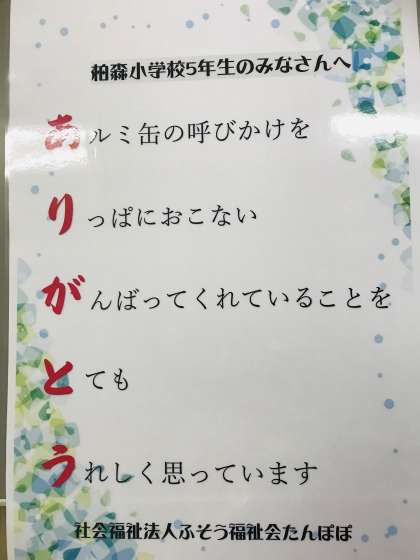 柏森小学校5年生のみなさんへ
あルミ缶の呼びかけを
りっぱにおこない
がんばってくれていることを
とても
うれしく思っています
社会福祉法人ふそう福祉会たんぽぽ